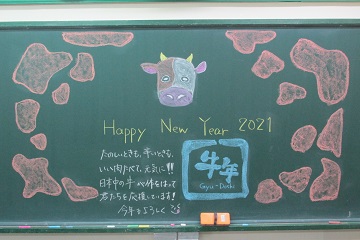 Happy New Year 2021
牛年
Gyu-Doshi
たのしいときも、辛いときも、
いい肉たべて、元気に!!
日本中の牛が体をはって
君たちを応援しています!
今年もよろしく